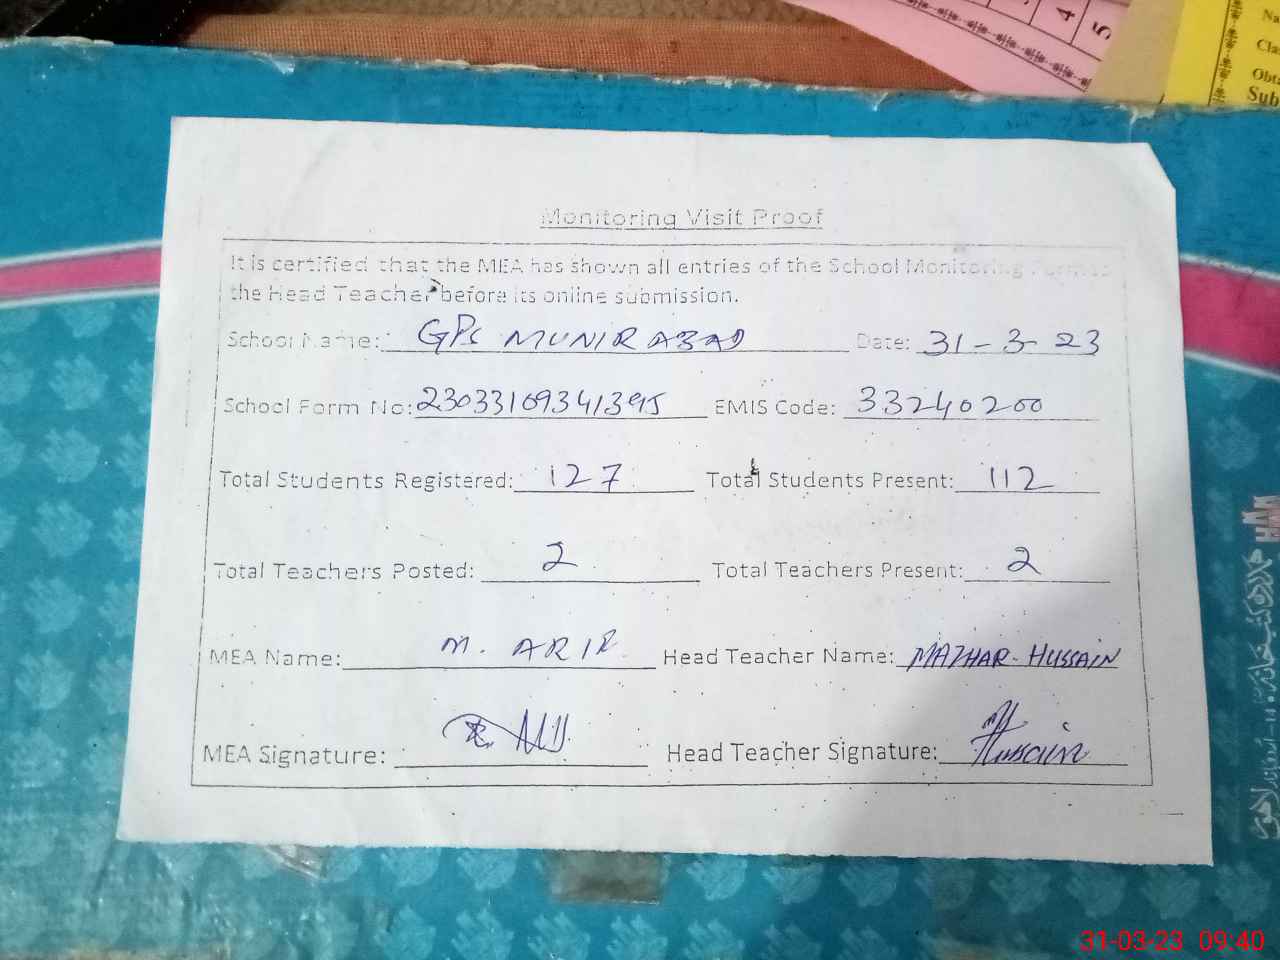 4
5
Na
Cla
Obt
Sub
Monitoring Visit Proof
It is certified that the MEA has shown all entries of the School Monitoring Form to
the Head Teacher before its online submission.
School Name: GPS MUNIR ABAD Date: 31-3-23
School Form No: 23033109341395 EMIS Code: 33240200
Total Students Registered: 127 Total Students Present: 112
Total Teachers Posted: 2 Total Teachers Present: 2
MEA Name: M. ARIF Head Teacher Name: MAZHAR HUSSAIN
MEA Signature: Head Teacher Signature: Hussain
31-03-23 09:40